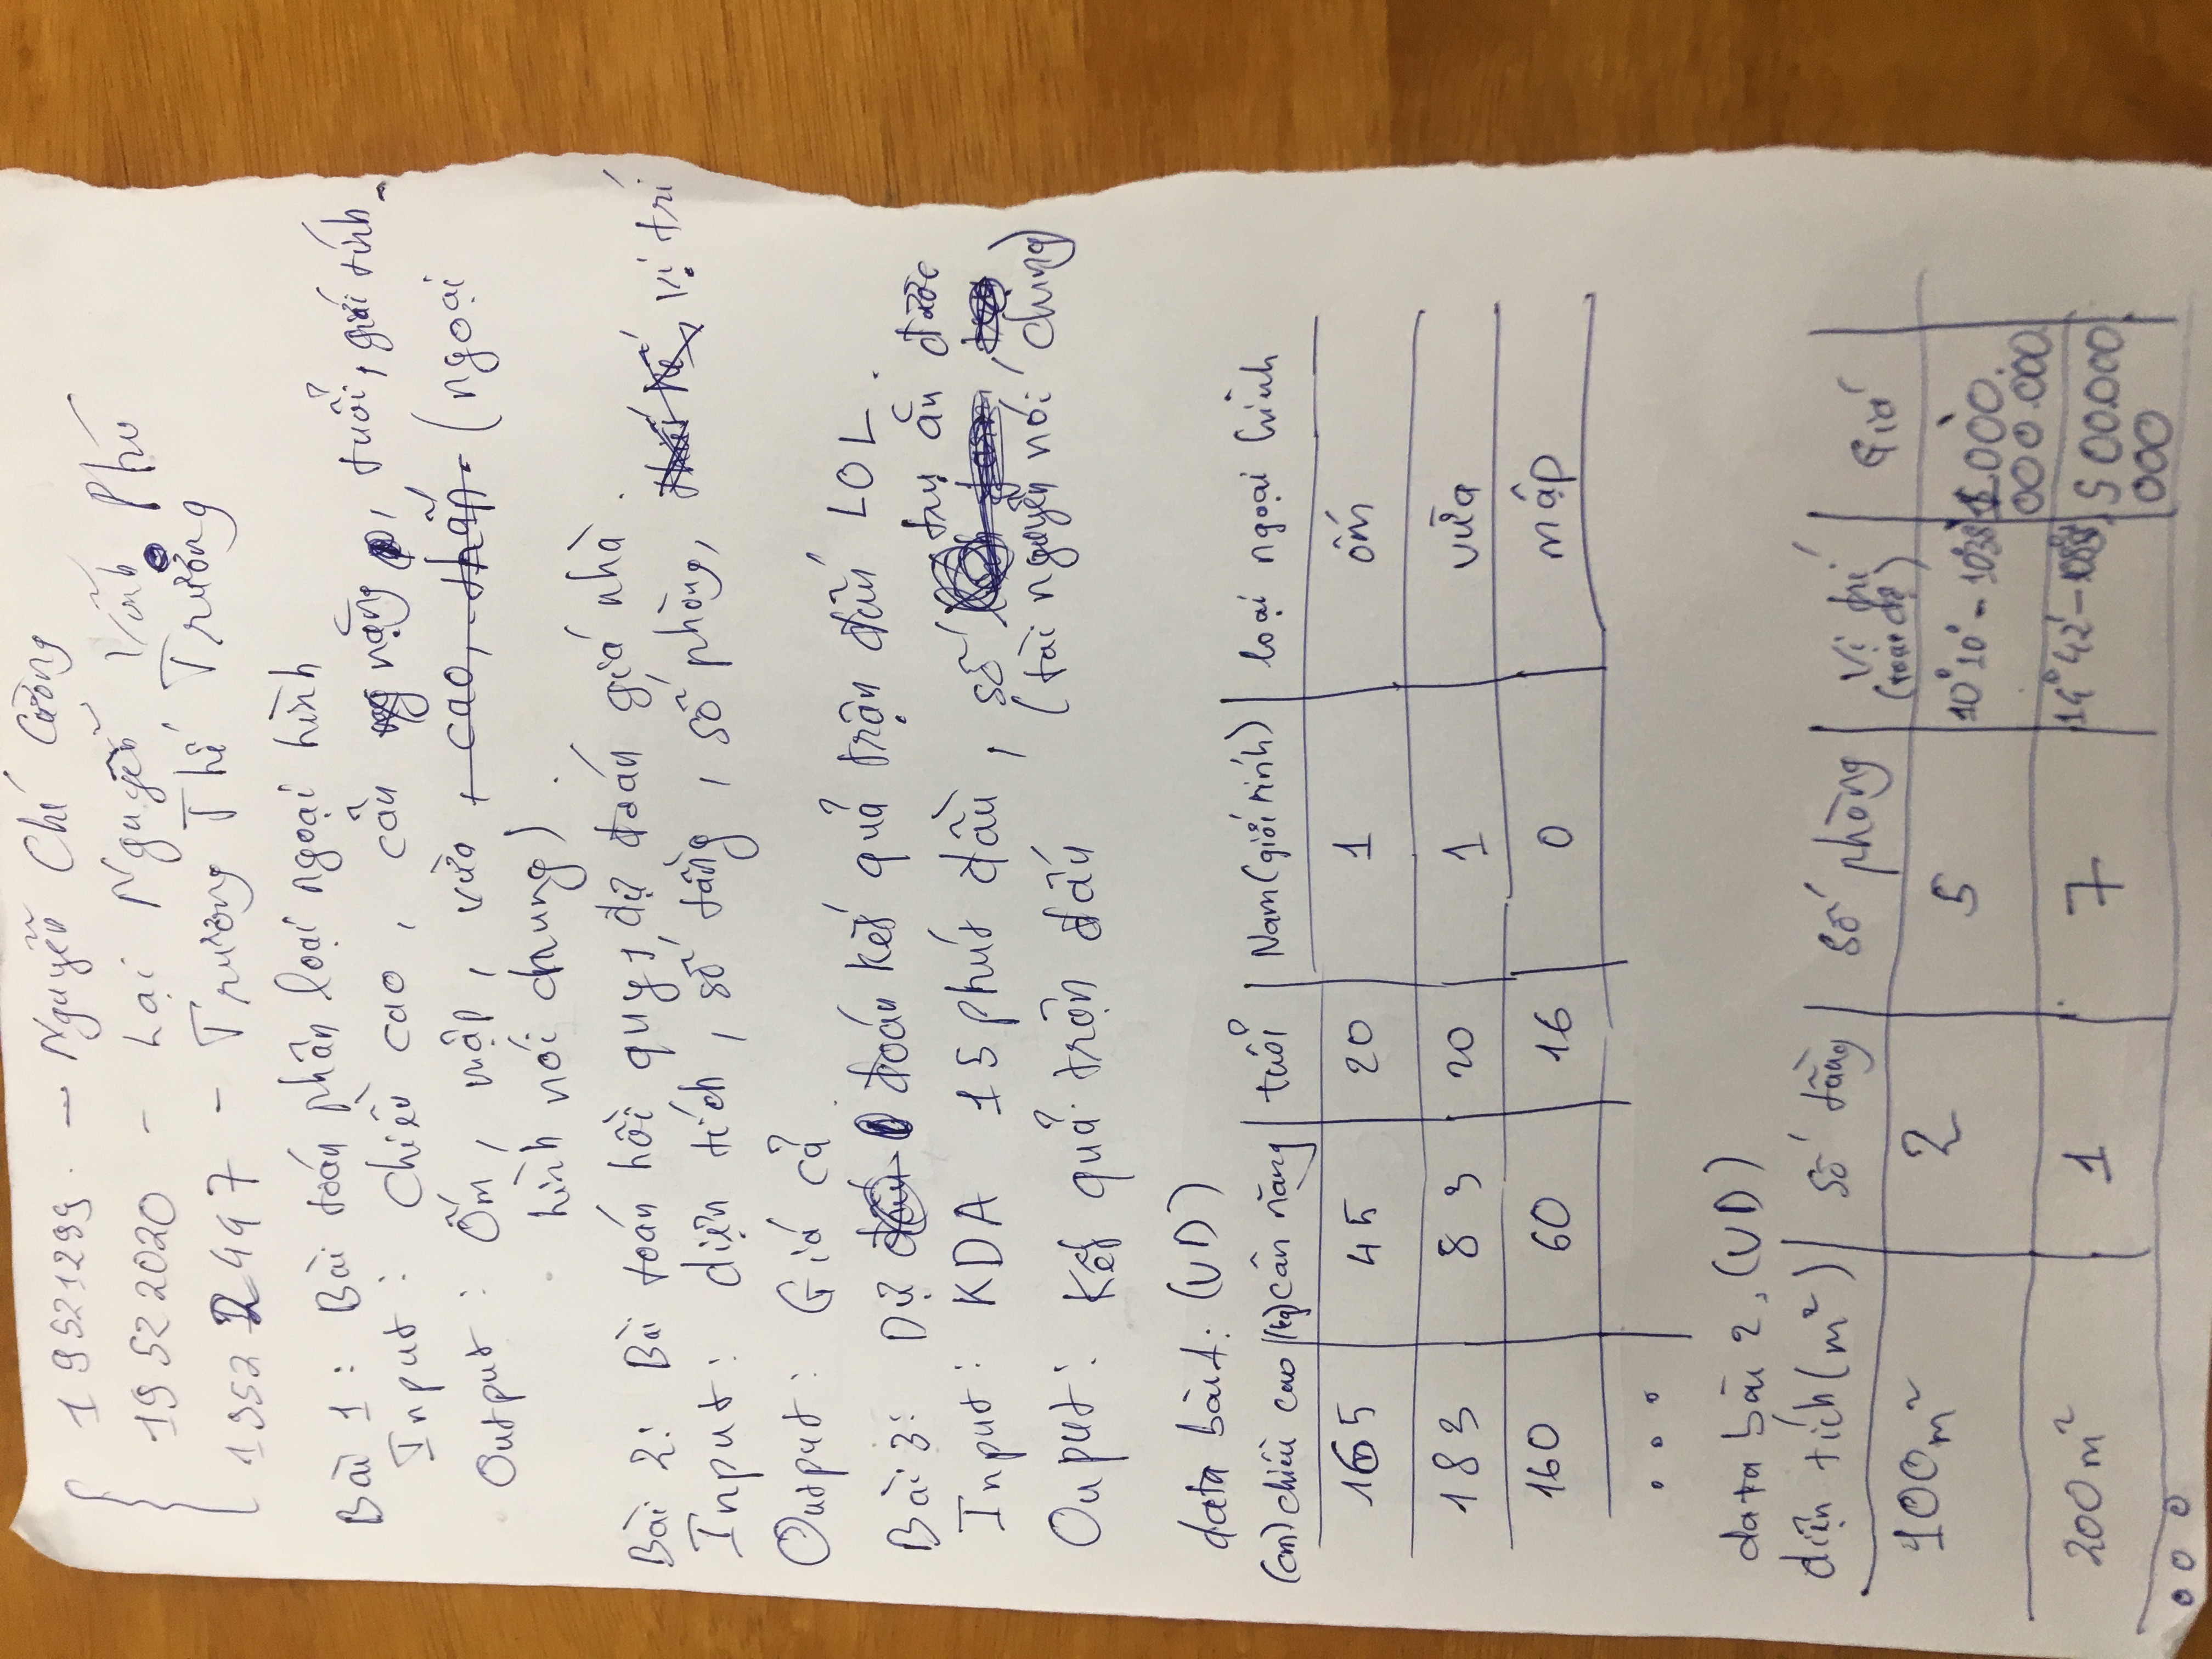 19521299 - Nguyễn Chí Cường
19522020 - Lại Nguyễn Vĩnh Phú
19522447 - Trương Thế Trường
Bài 1: Bài toán phân loại ngoại hình
Input: Chiều cao, cân nặng, tuổi, giới tính
Output: Ốm, mập, vừa, cao, thấp. (ngoại
hình nói chung).
Bài 2: Bài toán hồi quy, dự đoán giá nhà.
Input: diện tích, số tầng, số phòng, vị trí
Output: Giá cả.
Bài 3: Dự đoán kết quả trận đấu LOL.
Input: KDA 15 phút đầu, số trụ ăn được
(tài nguyên nói chung)
Ouput: Kết quả trận đấu
data bài 1: (VD)
(cm) chiều cao | (kg) cân nặng | tuổi | Nam (giới tính) | loại ngoại hình
165 | 45 | 20 | 1 | ốm
183 | 83 | 20 | 1 | vừa
160 | 60 | 16 | 0 | mập
...
data bài 2, (VD)
diện tích (m²) | số tầng | số phòng | Vị trí (toạ độ) | Giá
100m² | 2 | 5 | 10°10' - | 000.000.000
200m² | 1 | 7 | 14°42' - | 500.000.000
...